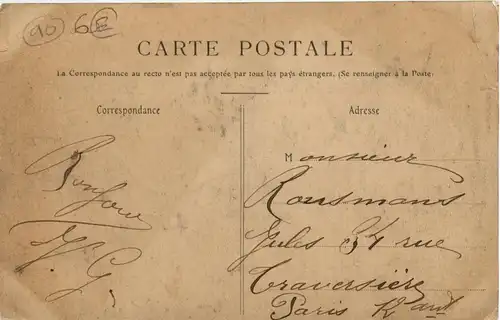 90 6E
CARTE POSTALE
La Correspondance au recto n'est pas acceptée par tous les pays étrangers. (Se renseigner à la Poste)
Correspondance
Adresse
Bonjour
Monsieur
Rousmans
Jules 34 rue
Traversière
Paris